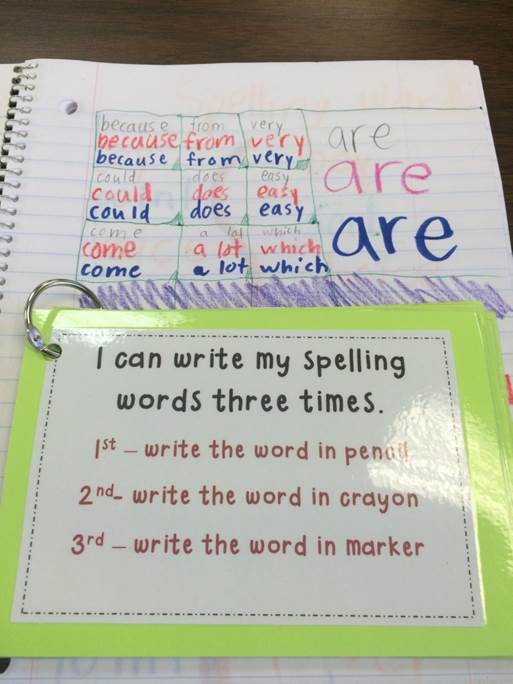 because from very
because from very
because from very
could does easy
could does easy
could does easy
come a lot which
come a lot which
come a lot which
are
are
are
I can write my spelling
words three times.
1st – write the word in pencil
2nd– write the word in crayon
3rd – write the word in marker